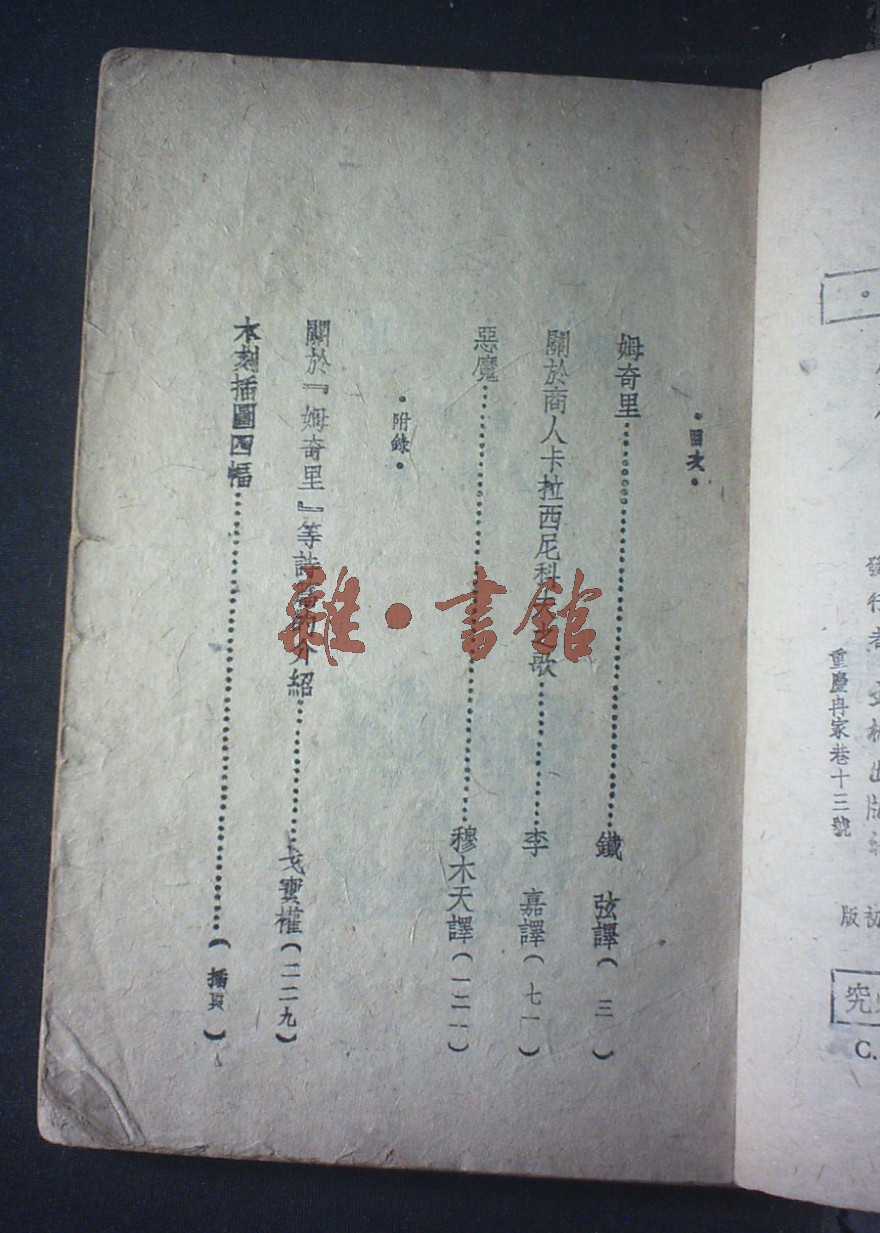 •目次•
姆奇里……鐵 弦譯(三)
關於商人卡拉西尼科夫之歌……李 嘉譯(七一)
惡魔……穆木天譯(一二一)
•附錄•
關於『姆奇里』等詩篇的介紹……戈寶權(二二九)
木刻插圖四幅……(插頁)
雜•書館
發行者
出版
重慶冉家巷十三號
初版
究
C.